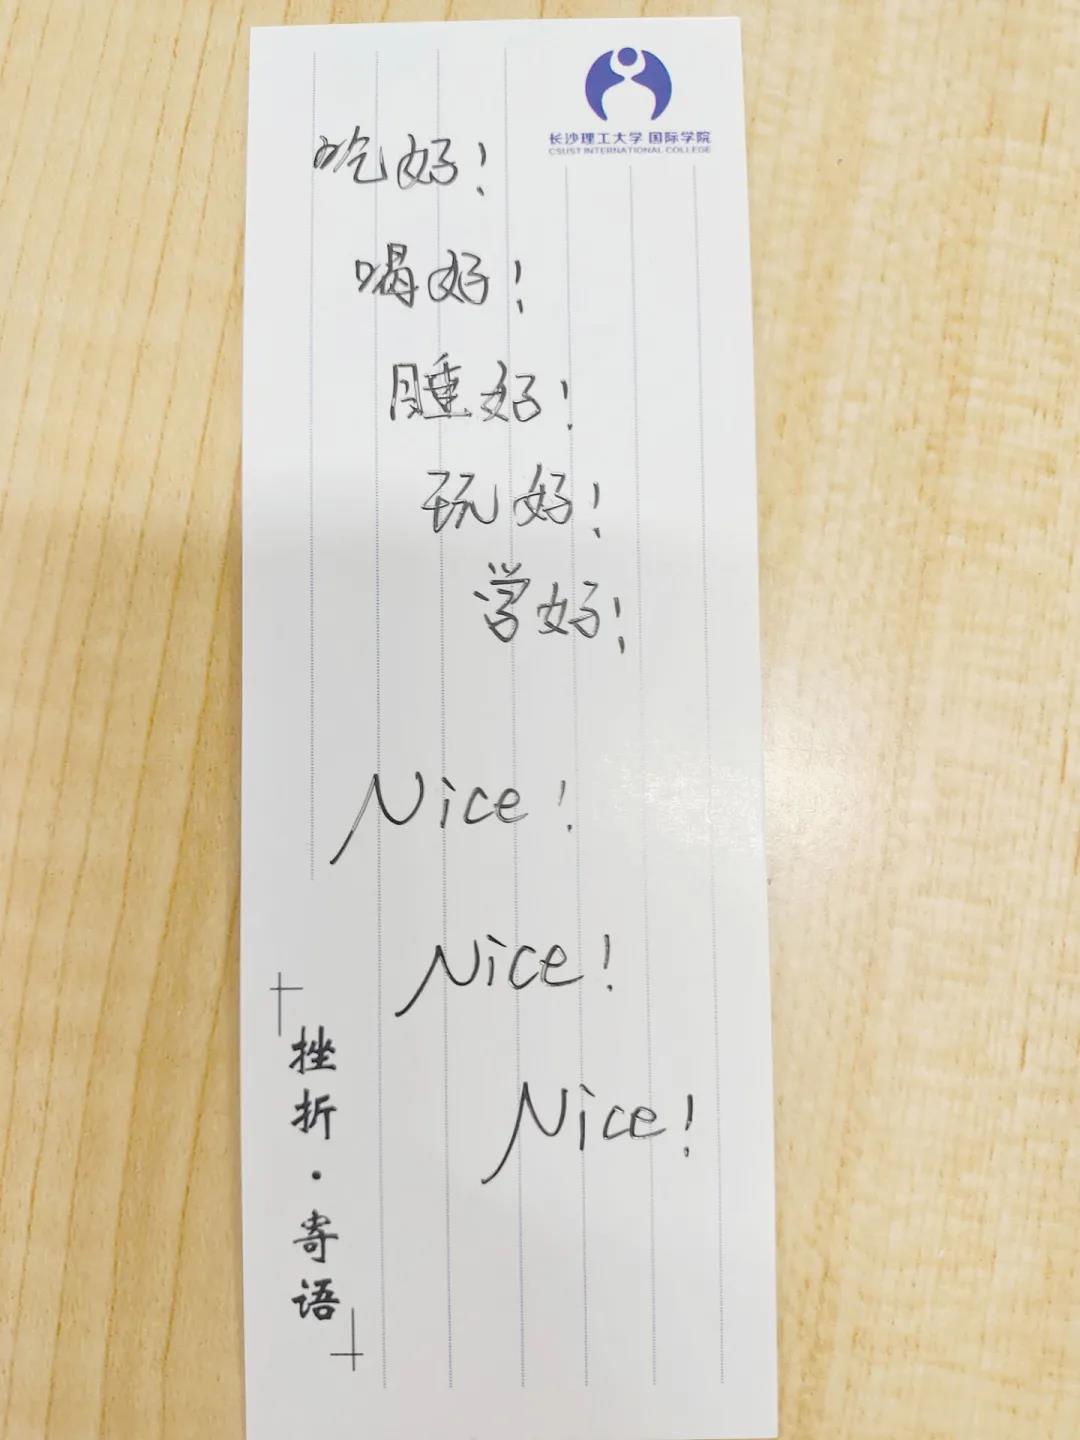 长沙理工大学 国际学院
CSUST INTERNATIONAL COLLEGE
吃好！
喝好！
睡好！
玩好！
学好！
Nice！
Nice！
Nice！
挫折·寄语